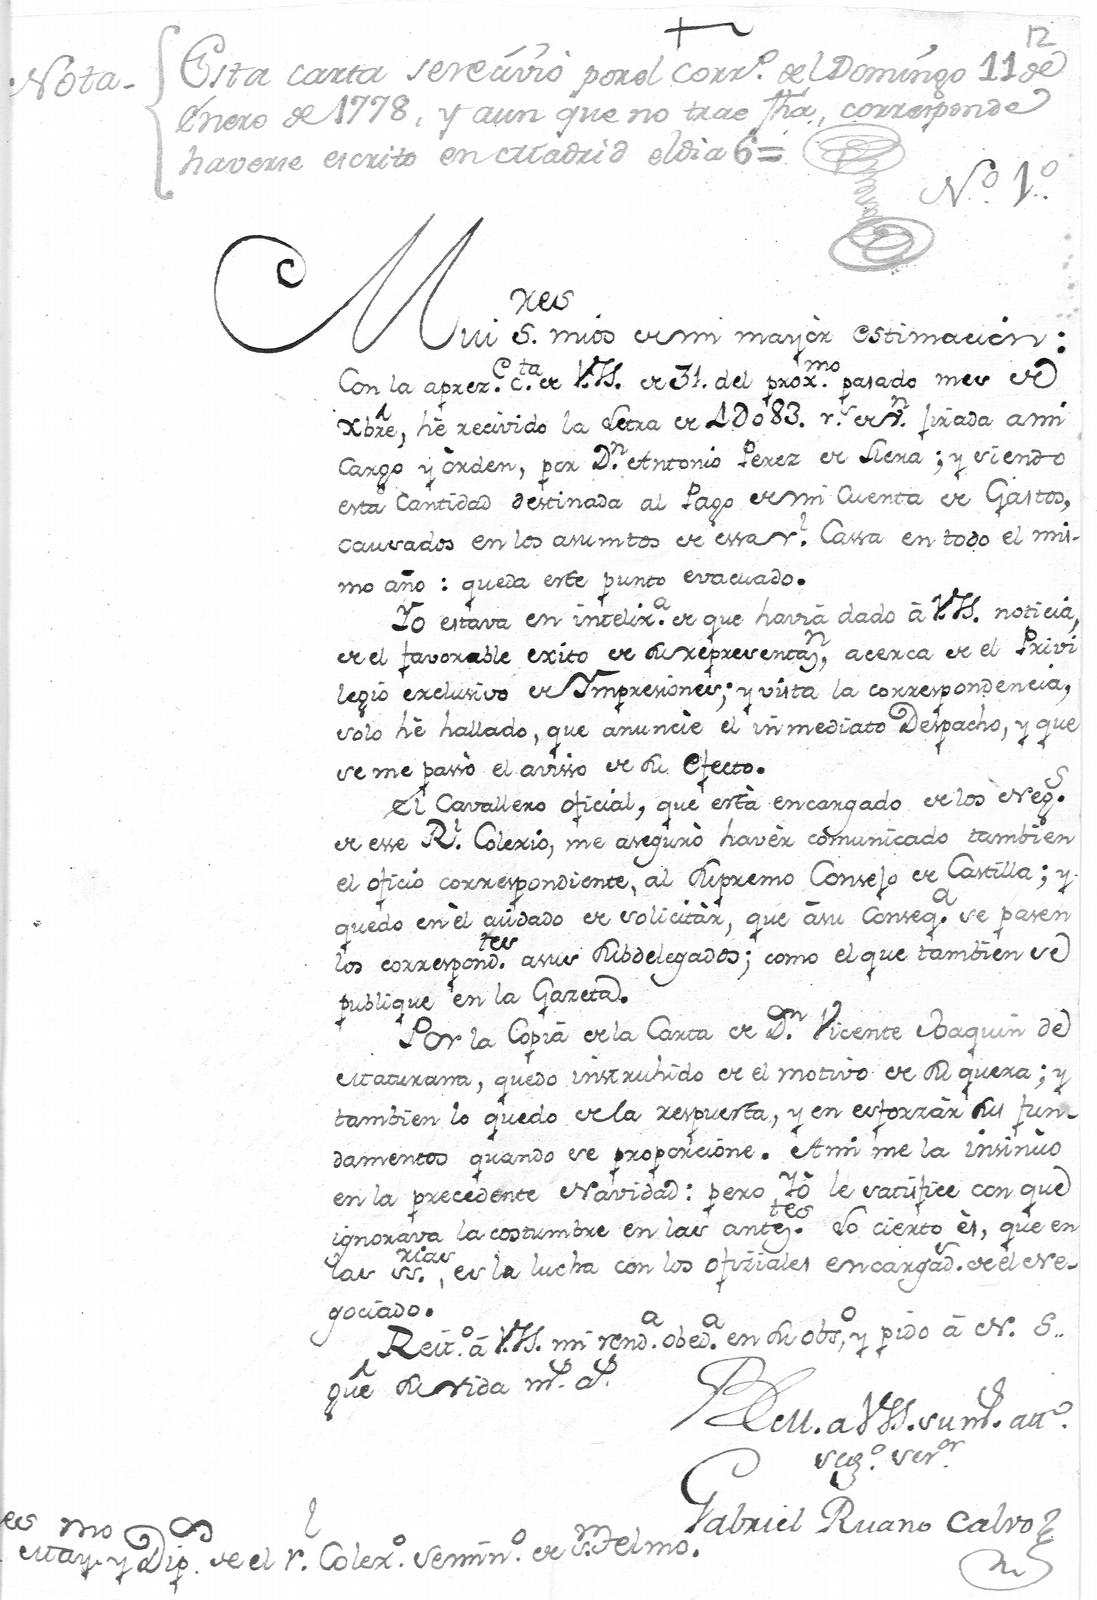 12
Nota- Esta carta se recivio por el Corr.º del Domingo 11 de
Enero de 1778, y aun que no trae fha, corresponde
haverse escrito en Madrid el dia 6=
N.º 1.º
Mui S.res mios de mi mayòr estimacion:
Con la aprez. C.ta de V.SS. de 31. del prox.mo pasado mes de
Xbre, hè recivido la Letra de 1Do83. r.s de v.n jirada a mi
cargo y òrden, por D.n Antonio Perez de Llera; y siendo
esta Cantidad destinada al Pago de mi Cuenta de Gastos,
causados en los asumtos de essa r.l Cassa en todo el mis-
mo año: queda este punto evacuado.
Yo estava en intelix.a de que havia dado à V.SS. noticia,
de el favorable exito de su representaz.n, acerca de el Privi
legio exclusivo de Ympresiones; y vista la correspondencia,
solo hè hallado, que anuncie el inmediato Despacho, y que
se me passò el avisso de su efecto.
El Cavallero oficial, que està encargado de los Neg.s
de esse R.l Colexio, me asegurò havèr comunicado tambien
el oficio correspondiente, al Supremo Consejo de Castilla; y
quedo en èl cuidado de solicitàr, que à su Conseq.a se pasen
los correspond.tes a sus Subdelegados; como el que tambien se
publique en la Gazeta.
Por la Copia de la Carta de D.n Vicente Joaquin de
Maturana, quedo instruhido de el motivo de su quexa; y
tambien lo quedo de la respuesta, y en esforzàr sus fun-
damentos quando se proporcione. A mi me la insinuo
en la precedente Navidad: pero Yò le satisfice con que
ignorava la costumbre en las ante.tes Lo cierto ès, que en
las ss.rias, es la lucha con los ofiziales encargad.s de el Ne-
gociado.
Reit.º à V.SS. mi rend.a obed.a en su obs.º, y pido à N. S..
gue su vida m.s a.s
B.L.M. a V.SS. su m.s att.º
seg.º ser.or
Gabriel Ruano Calvo
res Mayo.mo y Dip.s de el r.l Colex.º Semin.º de S.n Telmo.